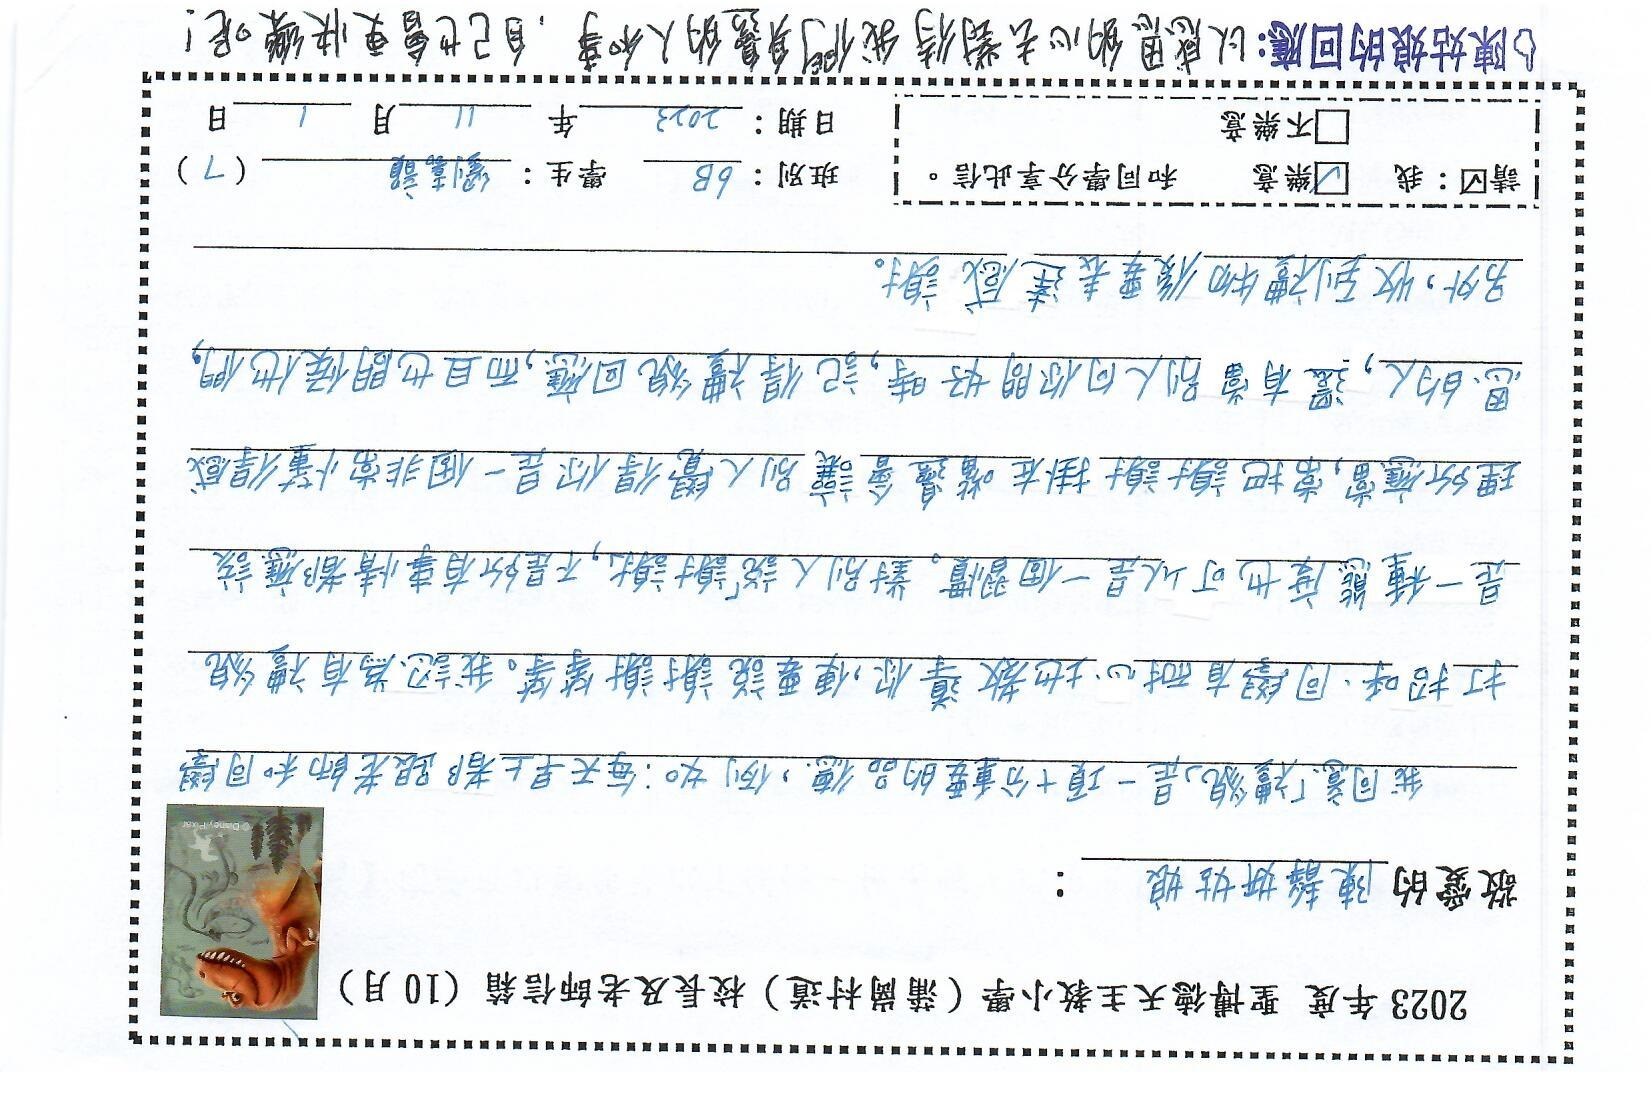 2023 年度 聖博德天主教小學（蒲崗村道）校長及老師信箱（10 月）
敬愛的 陳靜妍姑娘 ：
© Disney/Pixar
我同意「禮貌」是一項十分重要的品德，例如：每天早上都跟老師和同學
打招呼、同學有耐心地教導你，便要說謝謝等等。我認為有禮貌
是一種態度也可以是一個習慣。對別人說「謝謝」，不是所有事情都應該
理所應當，常把謝謝掛在嘴邊會讓別人覺得你是一個非常懂得感
恩的人，還有當別人向你問好時，記得禮貌回應，而且也問候他們，
另外，收到禮物後要表達感謝。
請☑：我 ☑樂意 和同學分享此信。
□不樂意
班別： 6B 學生： 劉嘉 （ 7 ）
日期： 2023 年 11 月 1 日
陳姑娘的回應：以感恩的心去對待我們身邊的人和事，自己也會更快樂呢！